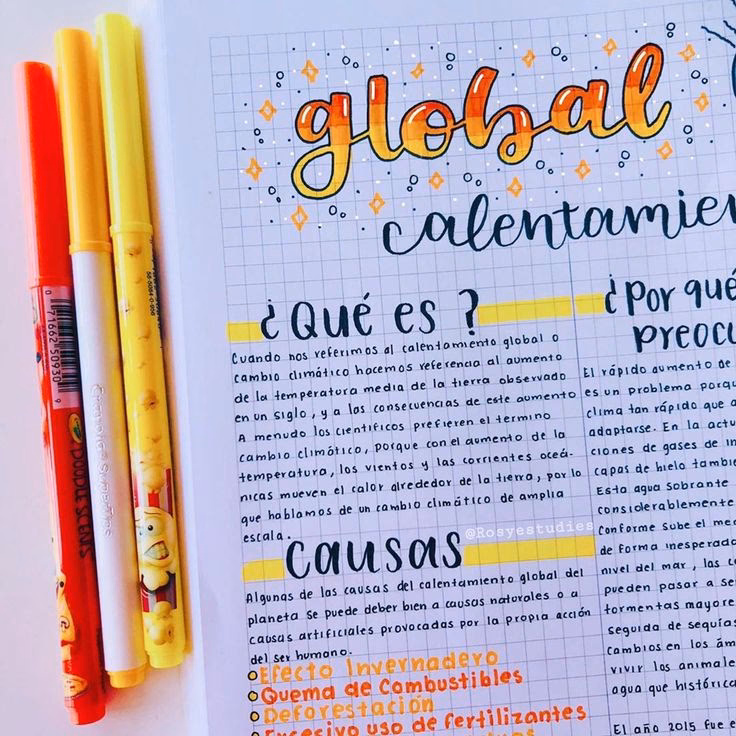 global
calentamie
¿Qué es?
Cuando nos referimos al calentamiento global o
cambio climático hacemos referencia al aumento
de la temperatura media de la tierra observado
en un siglo, y a las consecuencias de este aumento
A menudo los científicos prefieren el termino
cambio climático, porque con el aumento de la
temperatura, los vientos y las corrientes oceá-
nicas mueven el calor alrededor de la tierra, por lo
que hablamos de un cambio climático de amplia
escala.
Causas
Algunas de las causas del calentamiento global del
planeta se puede deber bien a causas naturales o a
causas artificiales provocadas por la propia acción
del ser humano.
Efecto Invernadero
Quema de Combustibles
Deforestación
Excesivo uso de fertilizantes
¿Por qué
preocu
El rápido aumento de
es un problema porqu
clima tan rápido que a
adaptarse. En la actu
ciones de gases de in
capas de hielo tambié
Esta agua sobrante
considerablemente
Conforme sube el me
de forma inesperada
nivel del mar, las c
pueden pasar a se
tormentas mayore
seguida de sequías
Cambios en los ám
vivir los animale
agua que histórica
El año 2015 fue e
@Rosyestudies
0 71662 50930 9
Crayola
DOODLE SCENTS
Crayola SuperTips
58-5054-0-956